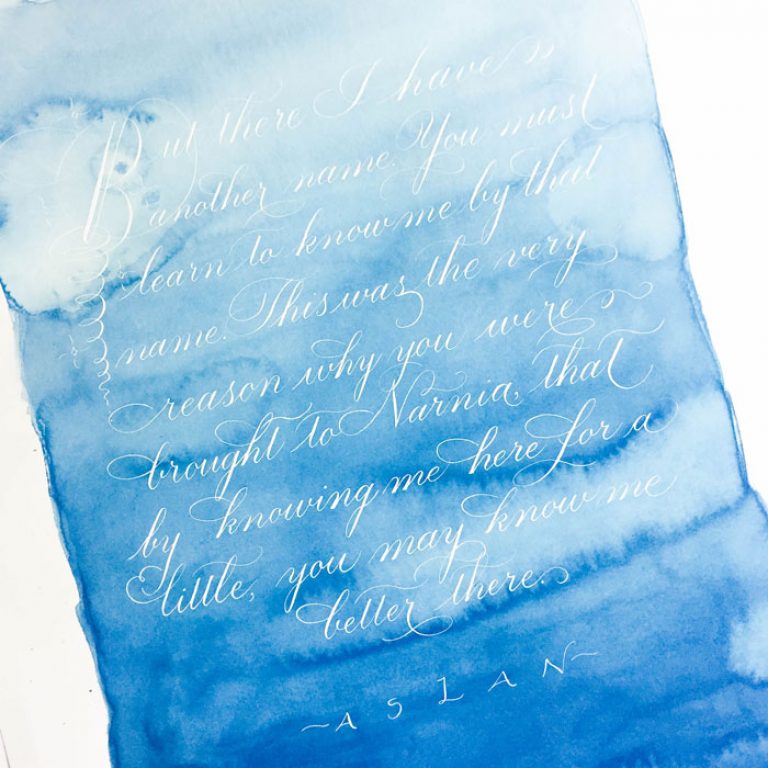 But there I have
another name. You must
learn to know me by that
name. This was the very
reason why you were
brought to Narnia, that
by knowing me here for a
little, you may know me
better there.
~ASLAN~